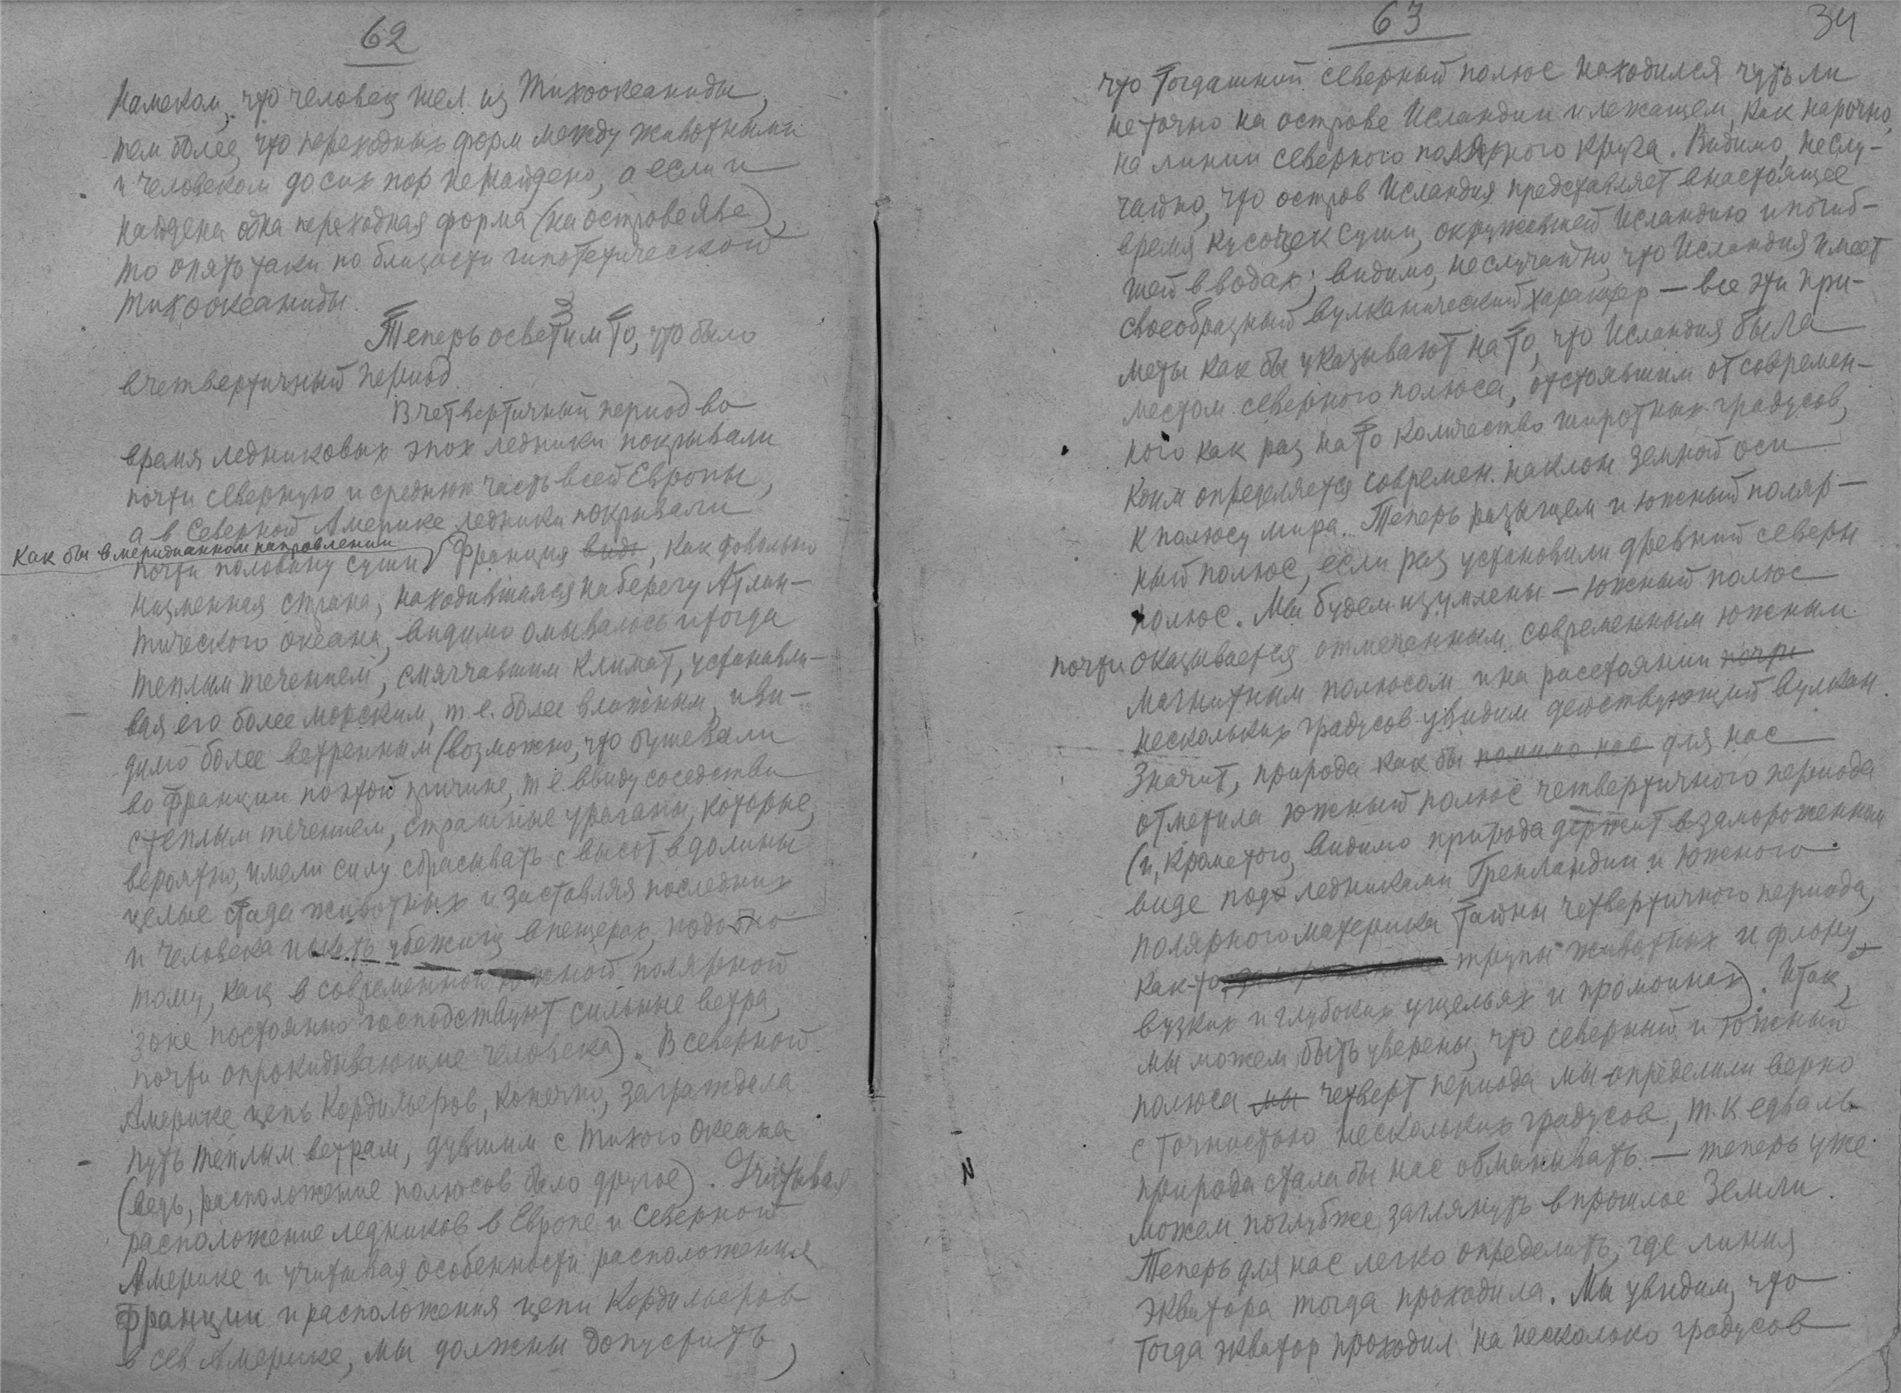 62
намеком, что человек шел из Тихоокеаниды,
тем более, что переходных форм между животными
и человеком до сих пор не найдено, а если и
найдена одна переходная форма (на острове Яве),
то опять таки по близости гипотетической
Тихоокеаниды.
3
Теперь осветим то, что было
в четвертичный период.
В четвертичный период во
время ледниковых эпох ледники покрывали
почти северную и среднюю часть всей Европы,
а в Северной Америке ледники покрывали
как бы в меридианном направлении
почти половину суши. Франция, как довольно
низменная страна, находившаяся на берегу Атлан-
тического океана, видимо омывалось и тогда
теплым течением, смягчавшим климат, устанавли-
вая его более морским, т.е. более влажным, и ви-
димо более ветренным (возможно, что бушевали
во Франции по этой причине, т.е. ввиду соседства
с теплым течением, страшные ураганы, которые,
вероятно, имели силу сбрасывать с высот в долины
целые стада животных и заставляя последних
и человека искать убежищ в пещерах, подобно
тому, как в современной южной полярной
зоне постоянно господствуют сильные ветра,
почти опрокидывающие человека). В северной
Америке цепь Кордильеров, конечно, заграждала
путь теплым ветрам, дувшим с Тихого океана
(ведь, расположение полюсов было другое). Учитывая
расположение ледников в Европе и Северной
Америке и учитывая особенности расположения
Франции и расположения цепи Кордильеров
в сев Америке, мы должны допустить,
63
34
что тогдашний северный полюс находился чуть ли
не точно на острове Исландии и лежащем, как нарочно,
на линии северного полярного круга. Видимо, неслу-
чайно, что остров Исландия представляет в настоящее
время кусочек суши, окружавшей Исландию и погиб-
шей в водах; видимо, неслучайно, что Исландия имеет
своеобразный вулканический характер — все эти при-
меты как бы указывают на то, что Исландия была
местом северного полюса, отстоявшим от современ-
ного как раз на то количество широтных градусов,
коим определяется современ. наклон земной оси
к полюсу мира. Теперь разыщем и южный поляр-
ный полюс, если раз установили древний северн
полюс. Мы будем изумлены — южный полюс
почти оказывается отмеченным современным южным
магнитным полюсом и на расстоянии почти
нескольких градусов увидим действующий вулкан.
Значит, природа как бы помимо нас для нас
отметила южный полюс четвертичного периода
(и, кроме того, видимо природа держит в замороженном
виде под ледниками Гренландии и Южного
полярного материка тайны четвертичного периода,
как-то трупы животных и флору
в узких и глубоких ущельях и промоинах). Итак,
мы можем быть уверены, что северный и южный
полюса мы четверт периода мы определили верно
с точностью нескольких градусов, т.к едва ль
природа стала бы нас обманывать — теперь уже
можем поглубже заглянуть в прошлое Земли.
Теперь для нас легко определить, где линия
экватора тогда проходила. Мы увидим, что
тогда экватор проходил на несколько градусов